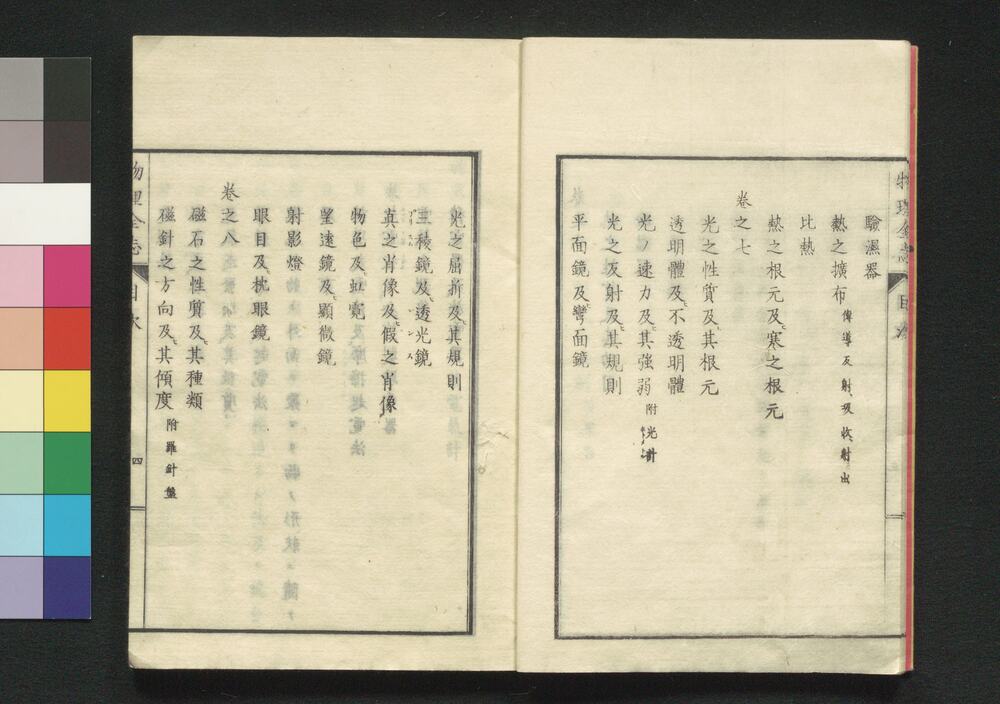 驗濕器
熱之擴布 傳導反射及收射出
比熱
熱之根元及ヒ寒之根元
卷之七
光之性質及ヒ其根元
透明體及ヒ不透明體
光ノ速力及ヒ其強弱 附光計
光之反射及ヒ其規則
平面鏡及ヒ彎面鏡
物理全志
目次
光之屈折及ヒ其規則
三稜鏡及ヒ透光鏡
真之肖像及ヒ假之肖像
物色及ヒ虹霓
望遠鏡及ヒ顯微鏡
射影燈
眼目及ヒ枕眼鏡
卷之八
磁石之性質及ヒ其種類
磁針之方向及ヒ其傾度 附羅針盤
物理全志
目次
四